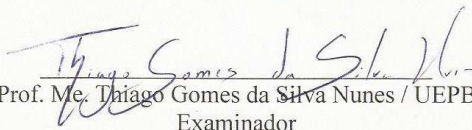 Thiago Gomes da Silva Nunes
Prof. Me. Thiago Gomes da Silva Nunes / UEPB
Examinador